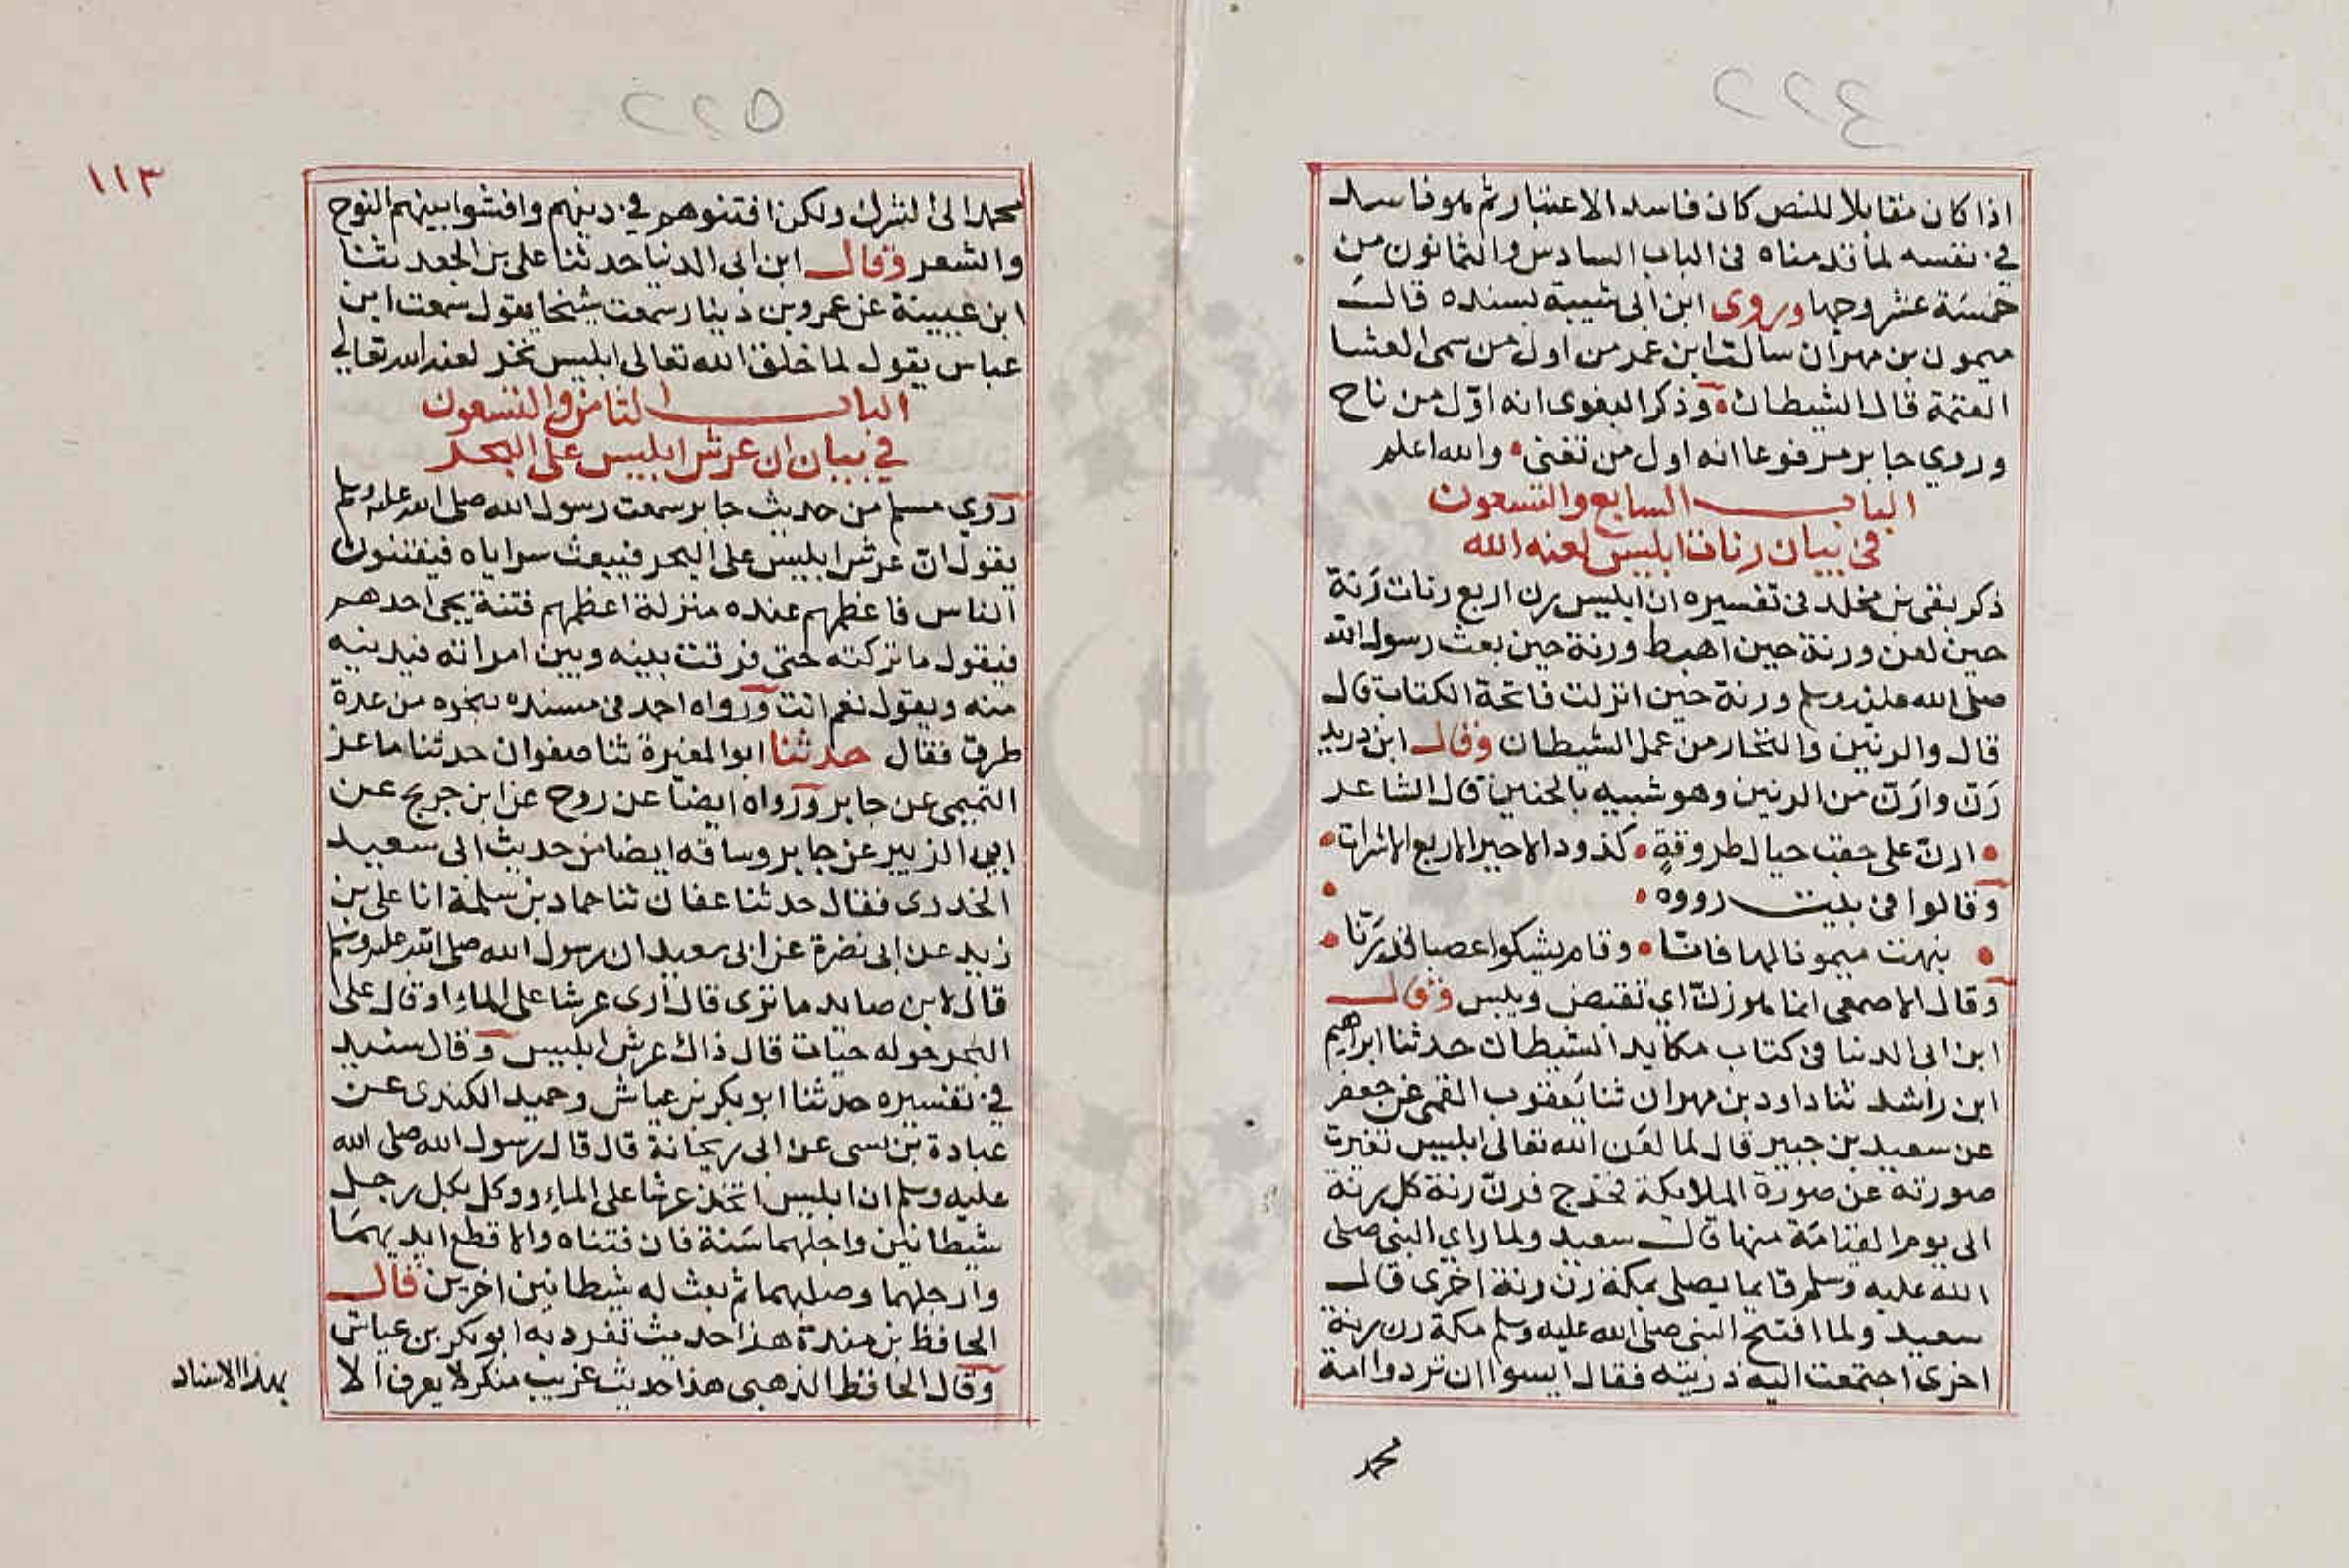 ٢٢٤
اذا كان مقابلا للنص كان فاسد الاعتبار ثم هو فاسد
في نفسه لما قدمناه في الباب السادس والثمانون من
خمسة عشر وجها وروى ابن ابى شيبة بسنده قالــ
ميمون بن مهران سالت ابن عمر من اول من سمى العشا
العتمة قال الشيطان وذكر البغوى انه اوّل من ناح
وروي جابر مرفوعا انه اول من تغنى والله اعلم
البابـــ السابع والتسعون
في بيان رنات ابليس لعنه الله
ذكر بقى بن مخلد في تفسيره ان ابليس رن اربع رنات رَنة
حين لعن ورنة حين اهبط ورنة حين بعث رسول الله
صلى الله عليه وسلم ورنة حين انزلت فاتحة الكتاب قال
قال والرنين والنخار من عمل الشيطان وقال ابن دريد
رَنّ وارَنّ من الرنين وهو شبيه بالحنين قال الشاعر
ارنّ على حقب حيال طروقةٍ كذود الاجير الاربع الاشرات
وقالوا في بيت رووه
بنهت ميمونا لها فانّا وقام يشكوا عصبا قد رَنّا
وقال الاصمعى انما هو زنّا اي تقبض ويبس وقالــ
ابن ابى الدنيا في كتاب مكايد الشيطان حدثنا ابراهيم
ابن راشد ثنا داود بن مهران ثنا يعقوب القمى عن جعفر
عن سعيد بن جبير قال لما لعن الله تعالى ابليس تغيرت
صورته عن صورة الملايكة فخرج فرنّ رنة كل رنة
الى يوم القيامَة منها قالــ سعيد ولما راي النبى صلى
الله عليه وسلم قايما يصلى بمكة رن رنة اخرى قالــ
سعيد ولما افتتح النبى صلى الله عليه وسلم مكة رن رنة
اخرى اجتمعت اليه ذريته فقال ايسوا ان تردوا امة
محمد
٢٢٥
١١٣
محمد الى الشرك ولكن افتنوهم في دينهم وافشوا بينهم النوح
والشعر وقالــ ابن ابى الدنيا حدثنا على بن الجعد ثنا
ابن عيينة عن عمرو بن دينار سمعت شيخا يقول سمعت ابن
عباس يقول لما خلق الله تعالى ابليس نخر لعنه الله تعالى
البابـــ الثامن والتسعون
في بيان ان عرش ابليس على البحر
روي مسلم من حديث جابر سمعت رسول الله صلى الله عليه وسلم
يقول انّ عرش ابليس على البحر فيبعث سراياه فيفتنون
الناس فاعظمهم عنده منزلة اعظمهم فتنة يجى احدهم
فيقول ما تركته حتى فرقت بينه وبين امراته فيدنيه
منه ويقول نعم انت ورواه احمد في مسنده بنحوه من عدة
طرق فقال حدثنا ابو المغيرة ثنا صفوان حدثنا ماعز
التميمى عن جابر ورواه ايضا عن روح عن ابن جريج عن
ابي الزبير عن جابر وساقه ايضا من حديث ابى سعيد
الخدرى فقال حدثنا عفان ثنا حماد بن سلمة انا على بن
زيد عن ابى نضرة عن ابى سعيد ان رسول الله صلى الله عليه وسلم
قال لابن صايد ما ترى قال ارى عرشا على الماء او قال على
البحر حوله حيات قال ذاك عرش ابليس وقال سنيد
في تفسيره حدثنا ابو بكر بن عياش وحميد الكندى عن
عبادة بن نسى عن ابى ريحانة قال قال رسول الله صلى الله
عليه وسلم ان ابليس اتخذ عرشا على الماء ووكل بكل رجل
شيطانين واجلهما سَنة فان فتناه والا قطع ايديهمَا
وارجلهما وصلبهما ثم بعث له شيطانين اخرين قالــ
الحافظ بن مندة هذا حديث تفرد به ابو بكر بن عياش
وقال الحافظ الذهبى هذا حديث غريب منكر لا يعرف الا
بهذا الاسناد